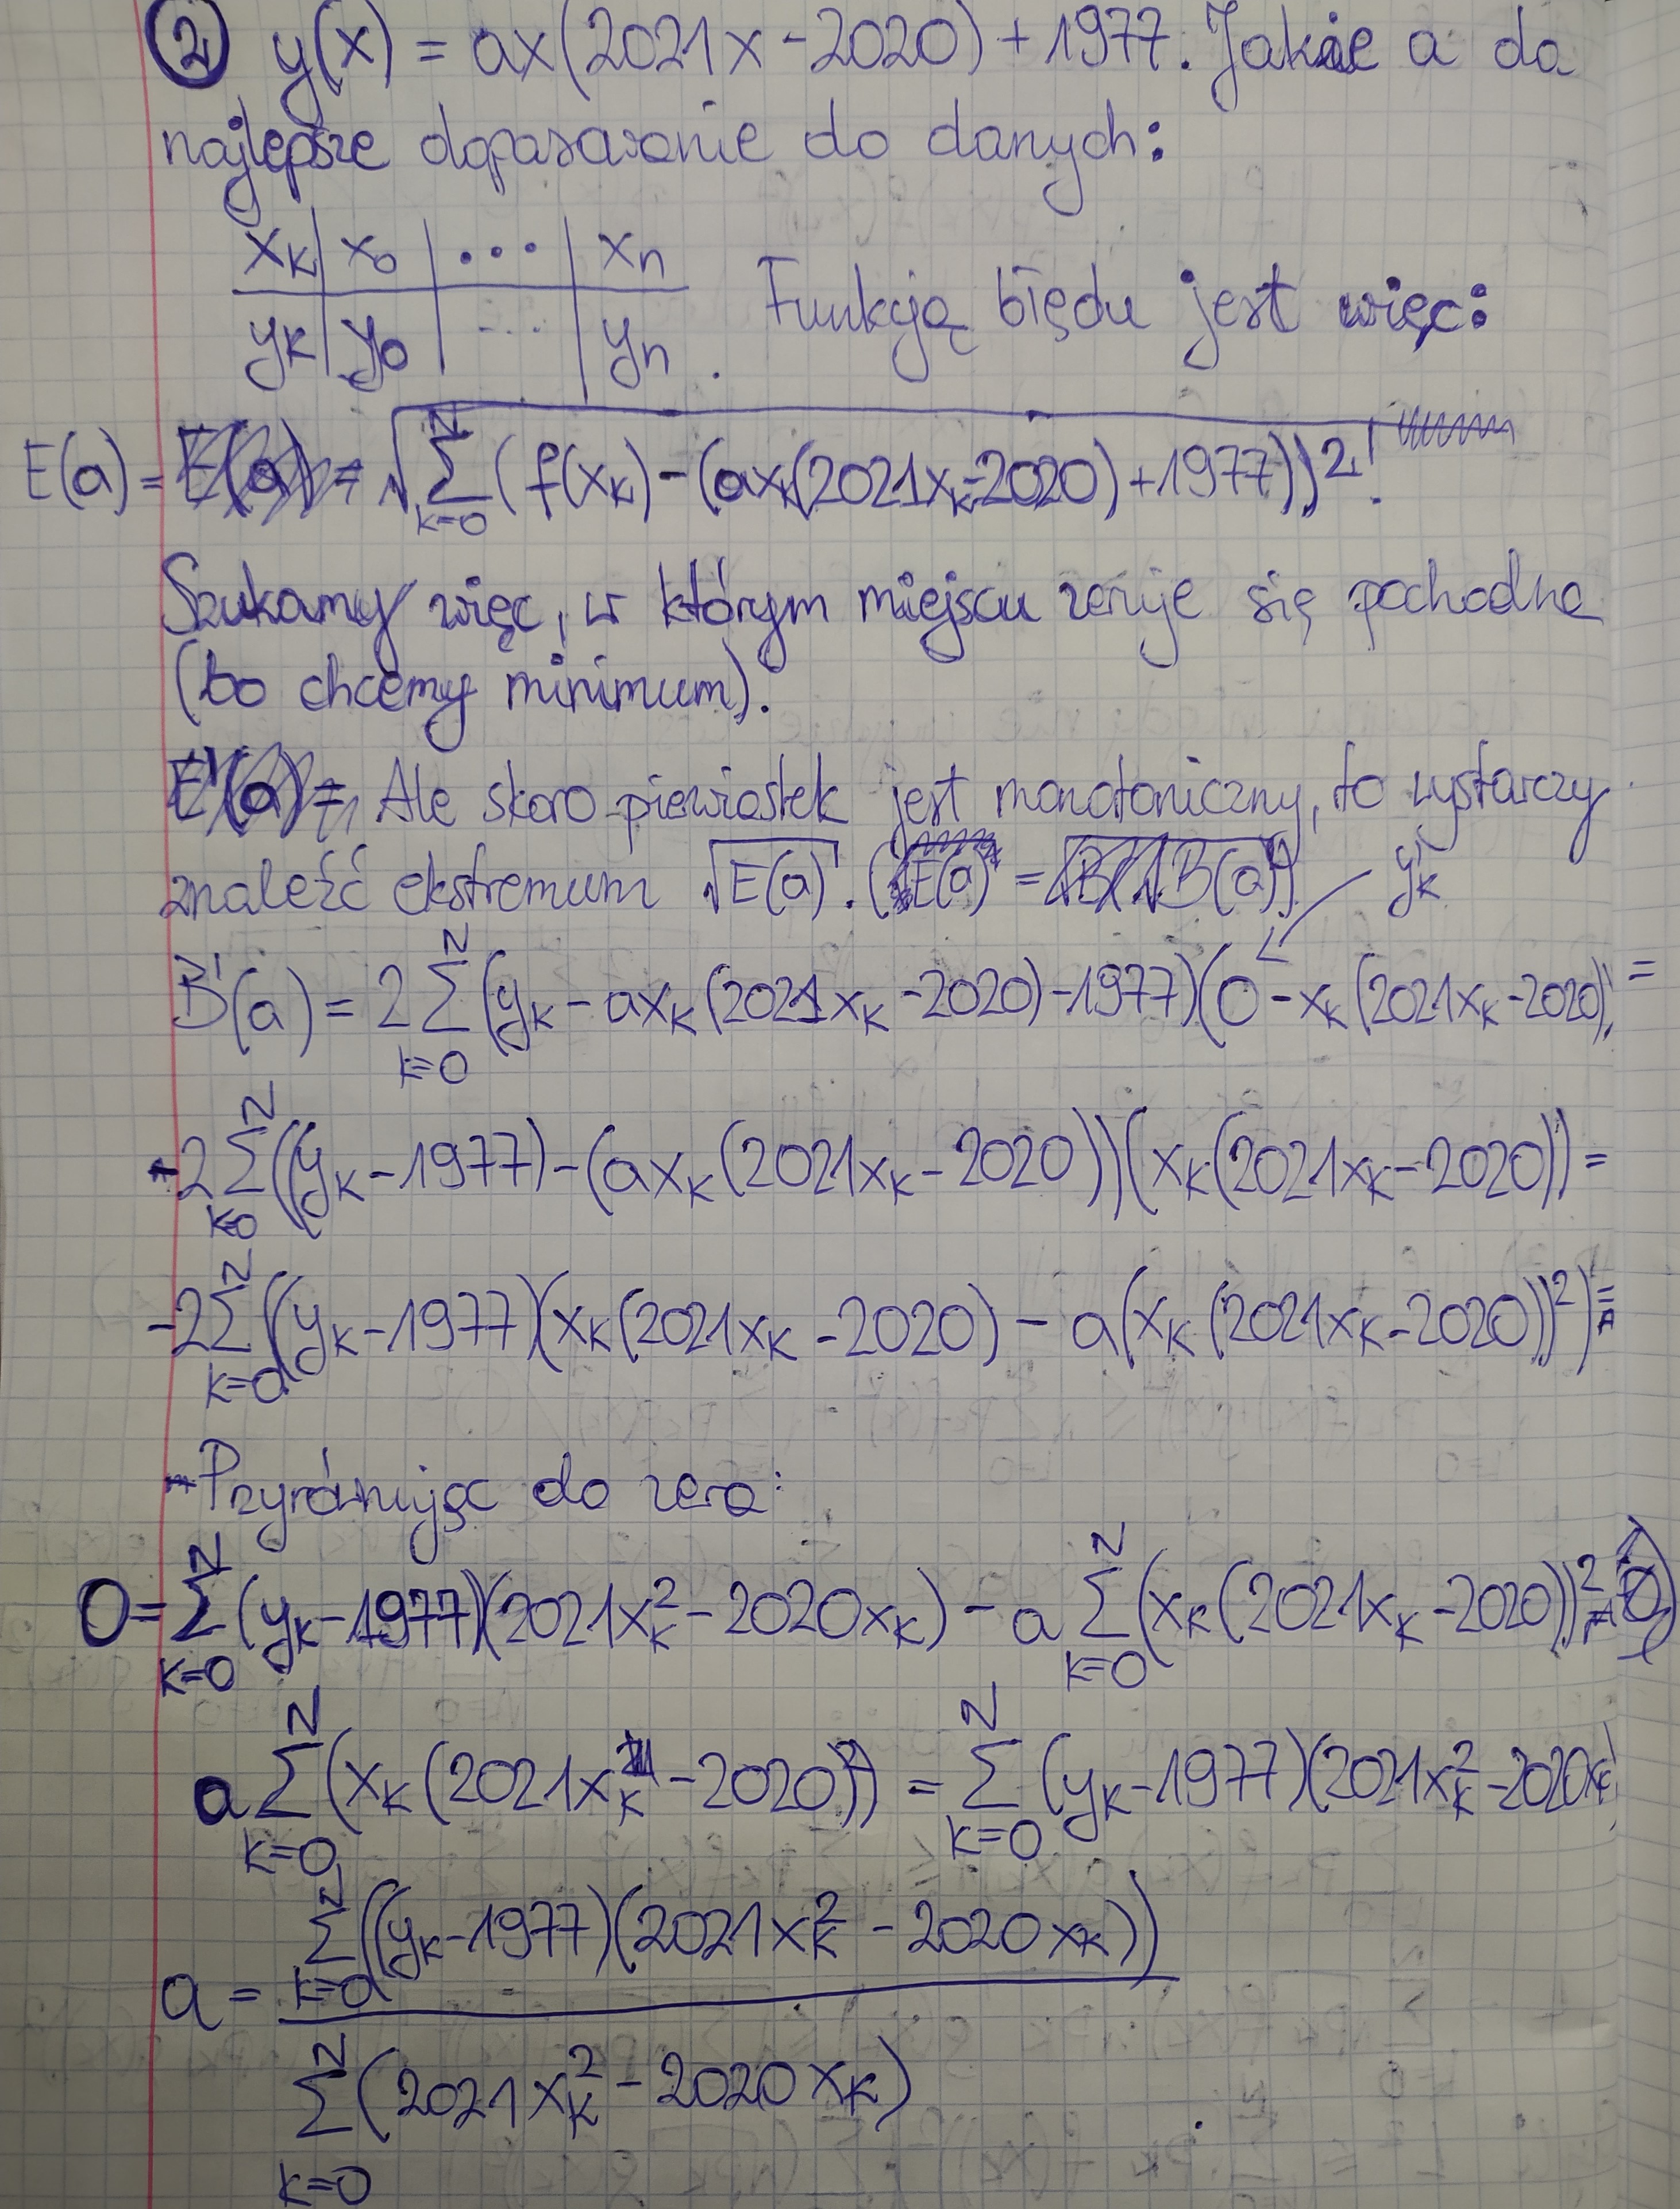 ② y(x) = ax(2021x - 2020) + 1977. Jakie a da
najlepsze dopasowanie do danych:
xk | x0 | ... | xn
yk | y0 | ... | yn . Funkcją błędu jest więc:
E(a) = √∑_{k=0}^{N} (f(xk) - (axk(2021xk - 2020) + 1977))²
Szukamy więc, w którym miejscu zeruje się pochodna
(bo chcemy minimum).
Ale skoro pierwiastek jest monotoniczny, to wystarczy
znaleźć ekstremum √E(a). (E(a) = √B(a)) yk'
B'(a) = 2∑_{k=0}^{N} (yk - axk(2021xk - 2020) - 1977)(0 - xk(2021xk - 2020)) =
-2∑_{k=0}^{N} ((yk - 1977) - (axk(2021xk - 2020))(xk(2021xk - 2020)) =
-2∑_{k=0}^{N} ((yk - 1977)(xk(2021xk - 2020) - a(xk(2021xk - 2020))²) =
Przyrównując do zera:
0 = ∑_{k=0}^{N} (yk - 1977)(2021xk² - 2020xk) - a∑_{k=0}^{N} (xk(2021xk - 2020))²
a∑_{k=0}^{N} (xk(2021xk - 2020)²) = ∑_{k=0}^{N} (yk - 1977)(2021xk² - 2020xk)
∑_{k=0}^{N} ((yk - 1977)(2021xk² - 2020xk))
a =
∑_{k=0}^{N} (2021xk² - 2020xk)